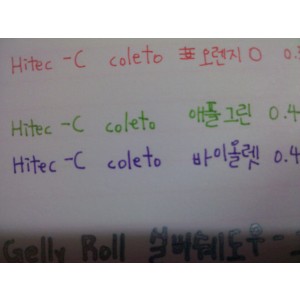 Hitec -C coleto 오렌지 O 0.
Hitec -C coleto 애플그린 0.4
Hitec -C coleto 바이올렛 0.4
Gelly Roll 실버쉐도우 -